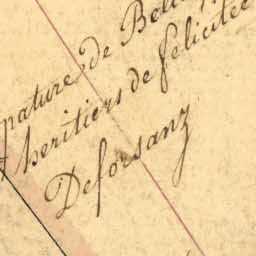 pature de
heritiers de felicitée
Deforsanz